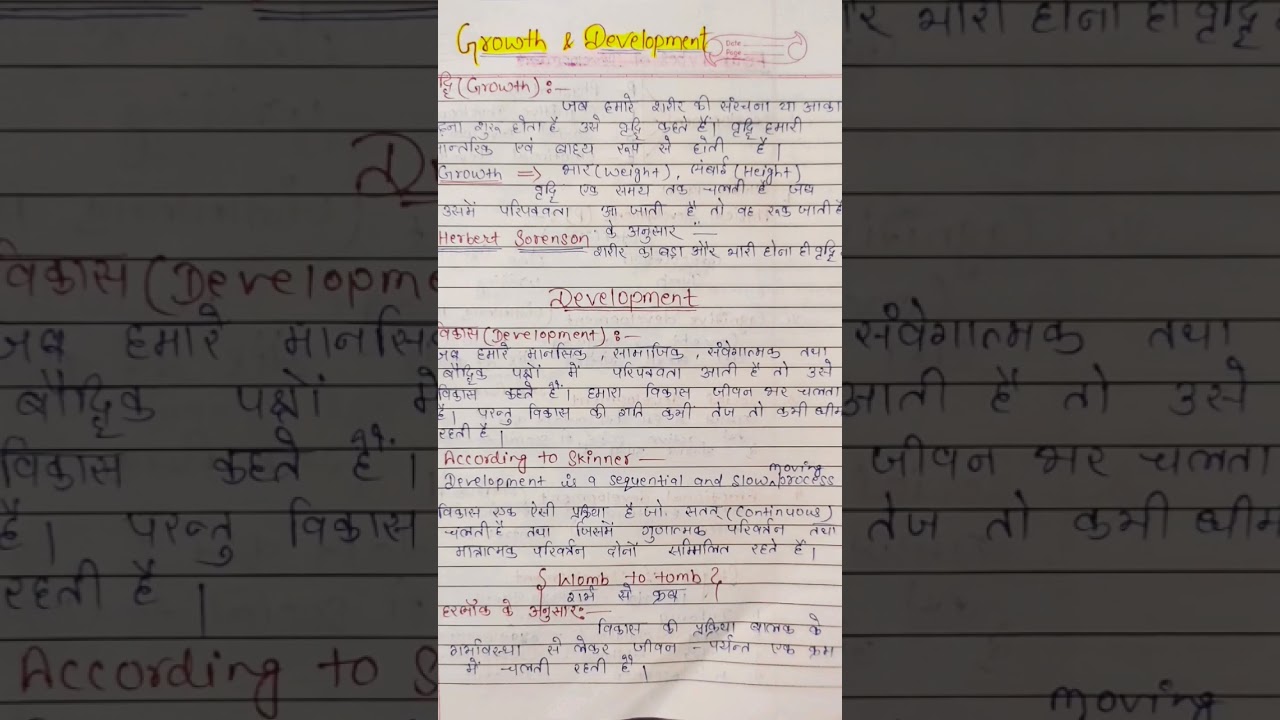 Growth & Development
Date
Page
द्धि (Growth) :—
जब हमारे शरीर की संरचना या आका
ढ़ना शुरू होता है उसे वृद्धि कहते हैं। वृद्धि हमारी
आन्तरिक एवं बाह्य रूप से होती है।
Growth => भार (Weight), लंबाई (Height)
वृद्धि एक समय तक चलती है जब
उसमें परिपक्वता आ जाती है तो वह रूक जाती है
Herbert Sorenson के अनुसार :—
शरीर का बड़ा और भारी होना ही वृद्धि
Development
विकास (Development) :—
जब हमारे मानसिक, सामाजिक, संवेगात्मक तथा
बौद्धिक पक्षों में परिपक्वता आती है तो उसे
विकास कहते हैं। हमारा विकास जीवन भर चलता
है। परन्तु विकास की गति कभी तेज तो कभी धीम
रहती है।
According to Skinner —
moving
Development is a sequential and slow process
विकास एक ऐसी प्रक्रिया है जो सतत् (Continuous)
चलती है तथा जिसमें गुणात्मक परिवर्तन तथा
मात्रात्मक परिवर्तन दोनों सम्मिलित रहते हैं।
{ Womb to tomb }
गर्भ से कब्र
हरलॉक के अनुसार:—
विकास की प्रक्रिया बालक के
गर्भावस्था से लेकर जीवन - पर्यन्त एक क्रम
में चलती रहती है।
र भारी होना ही वृद्धि
D
विकास (Developme
जब हमारे मानसि
संवेगात्मक तथा
बौद्धिक पक्षों में
आती है तो उसे
विकास कहते हैं।
जीवन भर चलता
है। परन्तु विकास
तेज तो कभी धीम
रहती है।
According to S
moving